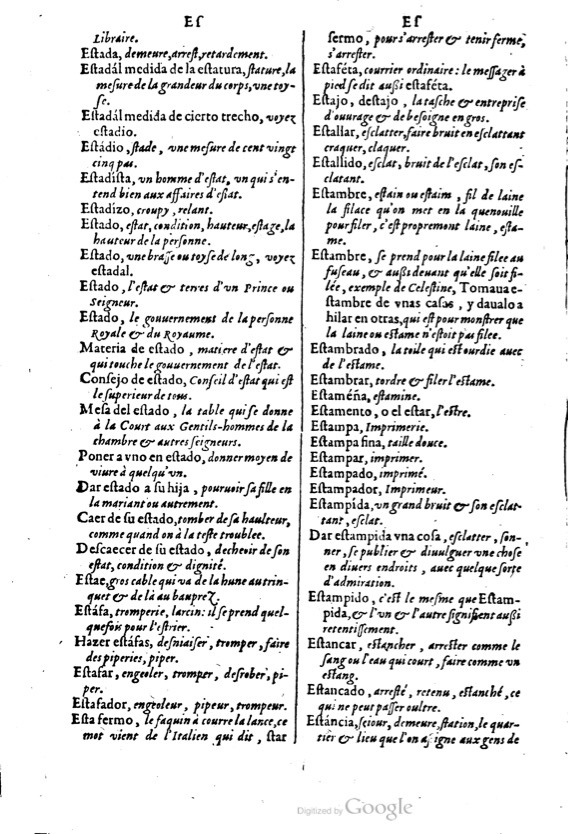 Eſ
Libraire.
Eſtada, demeure, arreſt, retardement.
Eſtadál medida de la eſtatura, ſtature, la
meſure de la grandeur du corps, vne toy-
ſe.
Eſtadál medida de cierto trecho, voyez
eſtadio.
Eſtádio, ſtade, vne meſure de cent vingt
cinq pas.
Eſtadiſta, vn homme d'eſtat, vn qui s'en-
tend bien aux affaires d'eſtat.
Eſtadízo, croupy, relant.
Eſtado, eſtat, condition, hauteur, eſtage, la
hauteur de la perſonne.
Eſtado, vne braſſe ou toyſe de long, voyez
eſtadal.
Eſtado, l'eſtat & terres d'vn Prince ou
Seigneur.
Eſtado, le gouuernement de la perſonne
Royale & du Royaume.
Materia de eſtado, matiere d'eſtat &
qui touche le gouuernement de l'eſtat.
Conſejo de eſtado, Conſeil d'eſtat qui eſt
le ſuperieur de tous.
Meſa del eſtado, la table qui ſe donne
à la Court aux Gentils-hommes de la
chambre & autres ſeigneurs.
Poner a vno en eſtado, donner moyen de
viure à quelqu'vn.
Dar eſtado a ſu hija, pouruoir ſa fille en
la mariant ou autrement.
Caer de ſu eſtado, tomber de ſa haulteur,
comme quand on à la teſte troublee.
Deſcaecer de ſu eſtado, decheoir de ſon
eſtat, condition & dignité.
Eſtae, gros cable qui va de la hune au trin-
quet & de là au baupréz.
Eſtáfa, tromperie, larcin: il ſe prend quel-
quefois pour l'eſtrier.
Hazer eſtáfas, deſniaiſer, tromper, faire
des piperies, piper.
Eſtafar, engeoler, tromper, deſrober, pi-
per.
Eſtafador, engeoleur, pipeur, trompeur.
Eſta fermo, le faquin à courre la lance, ce
mot vient de l'Italien qui dit, ſtar
Eſ
fermo, pour s'arreſter & tenir ferme,
s'arreſter.
Eſtaféta, courrier ordinaire: le meſſager à
pied ſe dit auſſi eſtaféta.
Eſtajo, deſtajo, la taſche & entrepriſe
d'ouurage & de beſoigne en gros.
Eſtallar, eſclatter, faire bruit en eſclattant
craquer, claquer.
Eſtallido, eſclat, bruit de l'eſclat, ſon eſ-
clatant.
Eſtambre, eſtain ou eſtaim, fil de laine
la filace qu'on met en la quenouille
pour filer, c'eſt proprement laine, eſta-
me.
Eſtambre, ſe prend pour la laine filee au
fuſeau, & auſſi deuant qu'elle ſoit fi-
lée, exemple de Celeſtine, Tomaua e-
ſtambre de vnas caſas, y daualo a
hilar en otras, qui eſt pour monſtrer que
la laine ou eſtame n'eſtoit pas filee.
Eſtambrado, la toile qui eſt ourdie auec
de l'eſtame.
Eſtambrar, tordre & filer l'eſtame.
Eſtaméña, eſtamine.
Eſtamento, o el eſtar, l'eſtre.
Eſtampa, Imprimerie.
Eſtampa fina, taille douce.
Eſtampar, imprimer.
Eſtampado, imprimé.
Eſtampador, Imprimeur.
Eſtampida, vn grand bruit & ſon eſclat-
tant, eſclat.
Dar eſtampida vna coſa, eſclatter, ſon-
ner, ſe publier & diuulguer vne choſe
en diuers endroits, auec quelque ſorte
d'admiration.
Eſtampido, c'eſt le meſme que Eſtam-
pida, & l'vn & l'autre ſignifient auſſi
retentiſſement.
Eſtancar, eſtancher, arreſter comme le
ſang ou l'eau qui court, faire comme vn
eſtang.
Eſtancado, arreſté, retenu, eſtanché, ce
qui ne peut paſſer oultre.
Eſtáncia, ſejour, demeure, ſtation, le quar-
tier & lieu que l'on aſſigne aux gens de
Digitized by Google